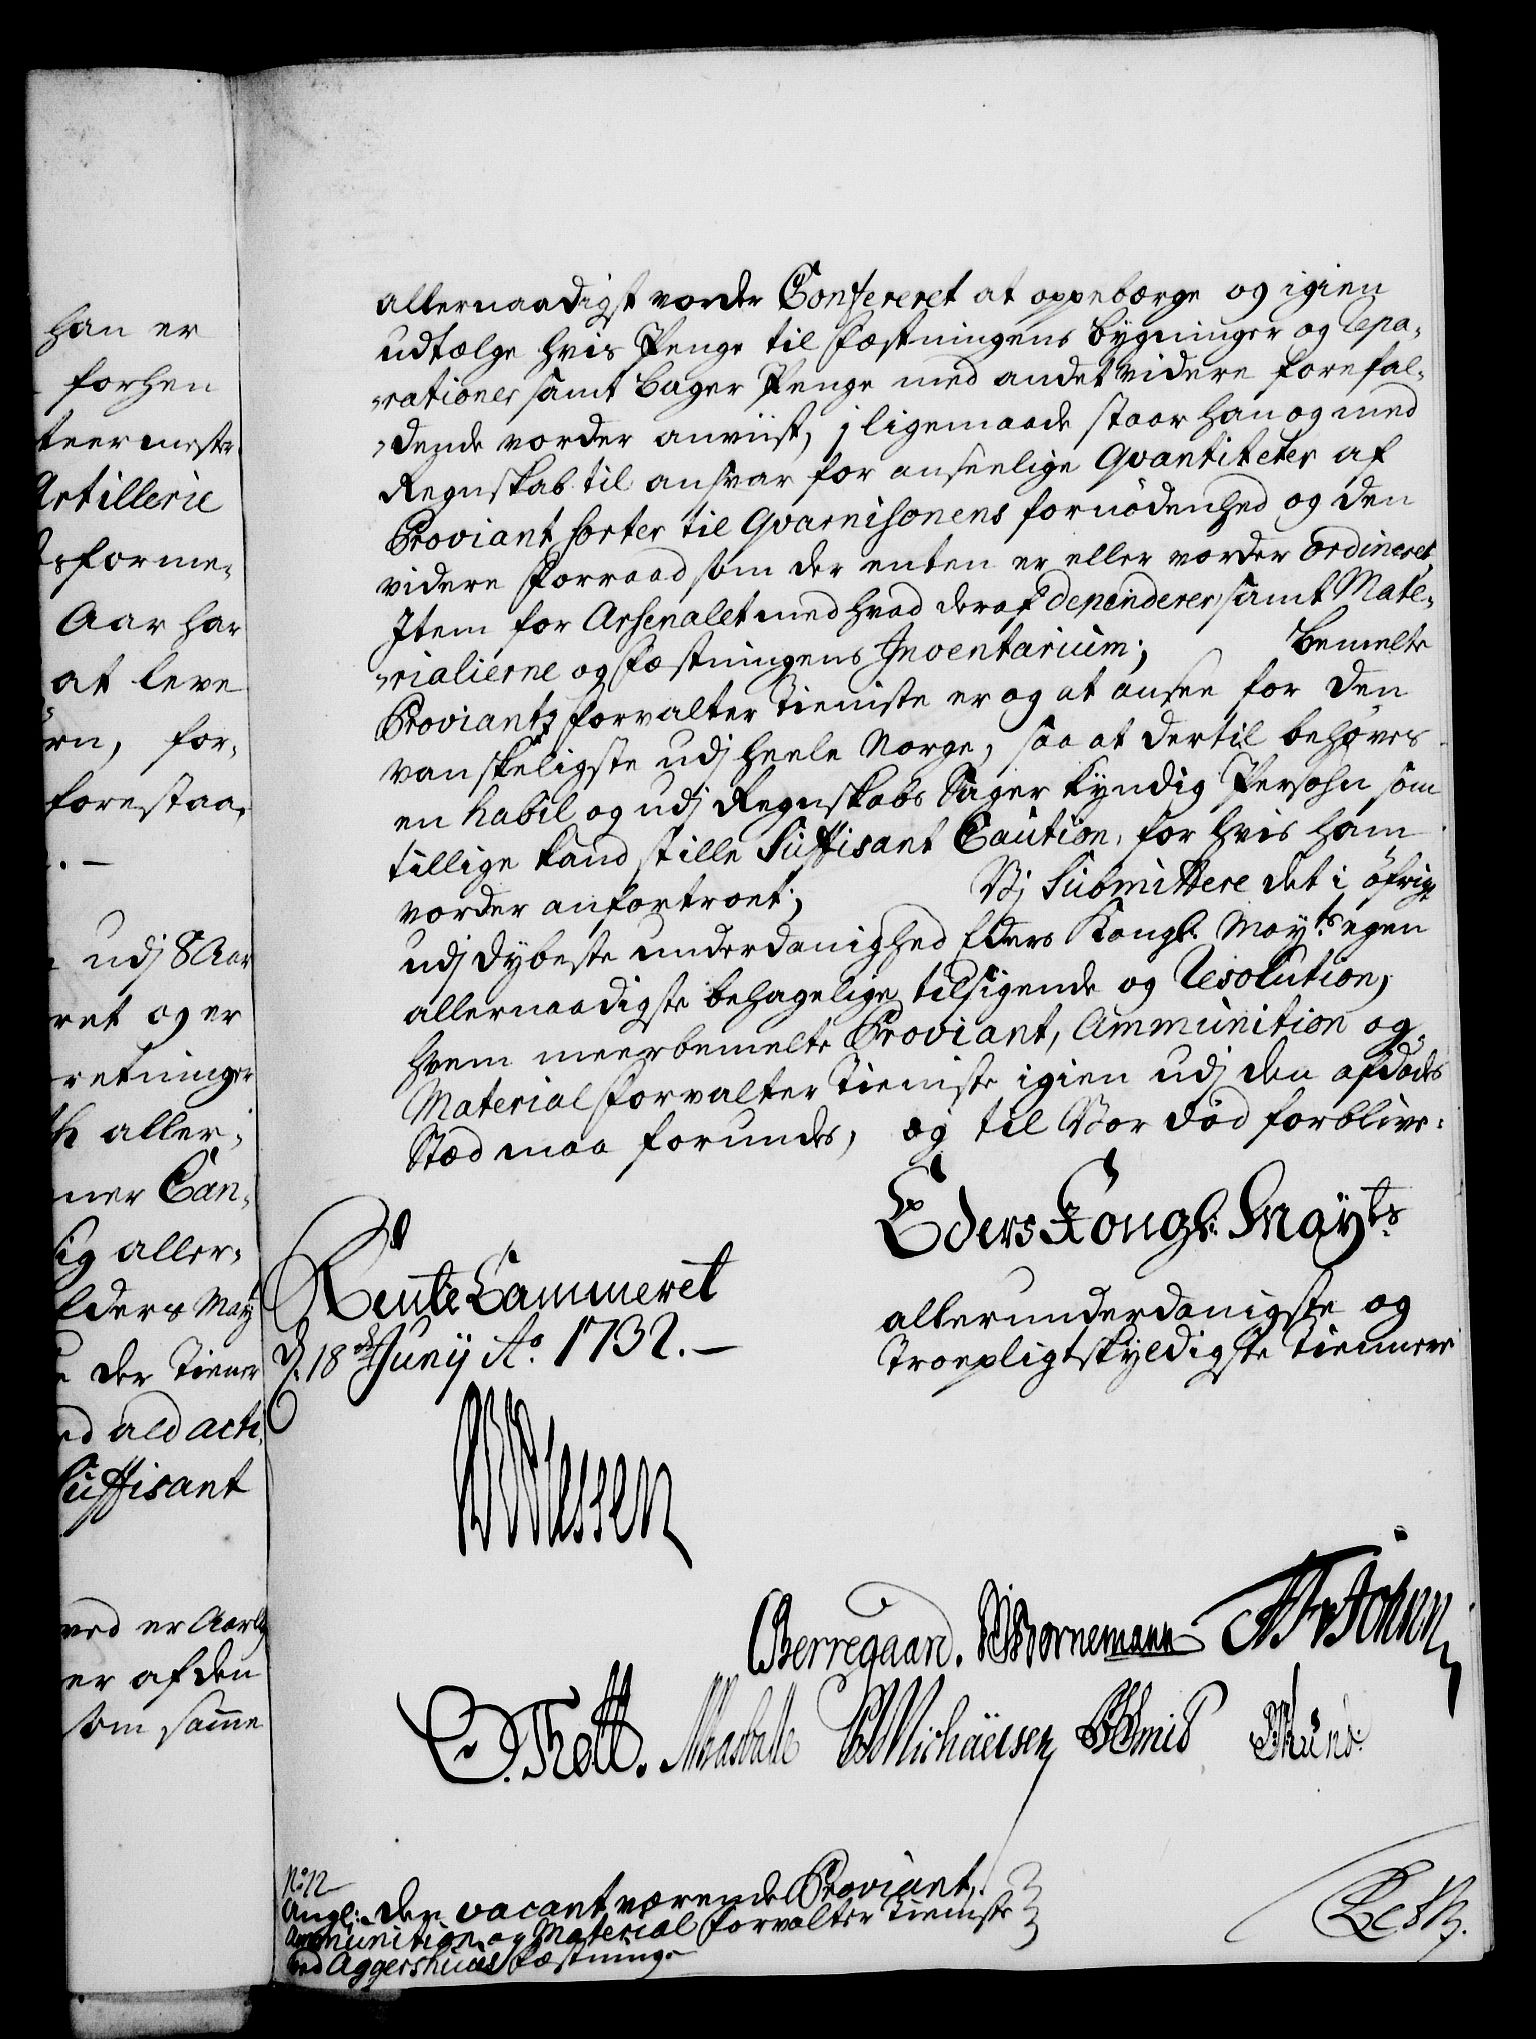 han er
forhen
teermester
Artillerie
forme-
Aar har
at leve
rn, for-
forestaa,
udj 8 Aar
ret og er
retninger
aller-
ner Can-
sig aller-
Eders May
der tiener
ald acti-
Suffisant
ved er Aarlig
er af den
som samme
allernaadigst vorder Confereret at oppebærge og igien
udtælge hvis Penge til Fæstningens bygninger og Repa-
-rationer samt Bager Penge med andet videre forefal-
-dende vorder anviist, j ligemaade staar han og med
Regnskab til ansvar for anseelige Qvantiteter af
Proviant sorter til Gvarnisonens fornödenhed og den
videre Forraad som der enten er eller vorder Ordineret,
Item for Arsenalet med hvad deraf dependerer samt Mate-
-rialierne og Fæstningens Inventarium; Bemelte
Proviantz forvalter Tieniste er og at ansee for den
vanskeligste udj heele Norge, saa at dertil behøves
en habil og udj Regnskabs Sager kyndig Persohn som
tillige kand stille Suffisant Caution, for hvis ham
vorder anfortroet; Vj Submittere det i öfrigt
udj dybeste underdanighed Eders Kongl: Mayts egen
allernaadigste behagelige tilsigende og Resolution,
hvem meerbemelte Proviant, Ammunition og
Material forvalter Tieniste igien udj den afdødes
Stæd maa forundes, og til Vor död forblive:
Eders Kongl: Mayts
Rente Cammeret
d. 18de Junij Ao. 1732.
allerunderdanigste og
Troepligtskyldigste tiennere
Berregaard. Bornemann
O. Thott. Michäelsen Smid
No: 12
Angl: den vacant værende Proviant,
Ammunition og Material forvalter Tieniste
ved Aggershuus Fæstning.